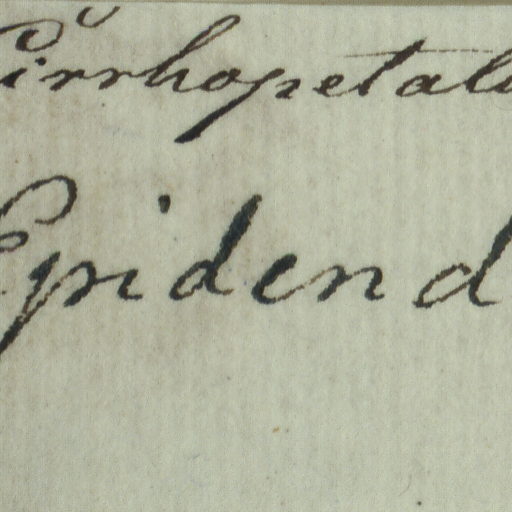 Cirrhopetalu
Epidend